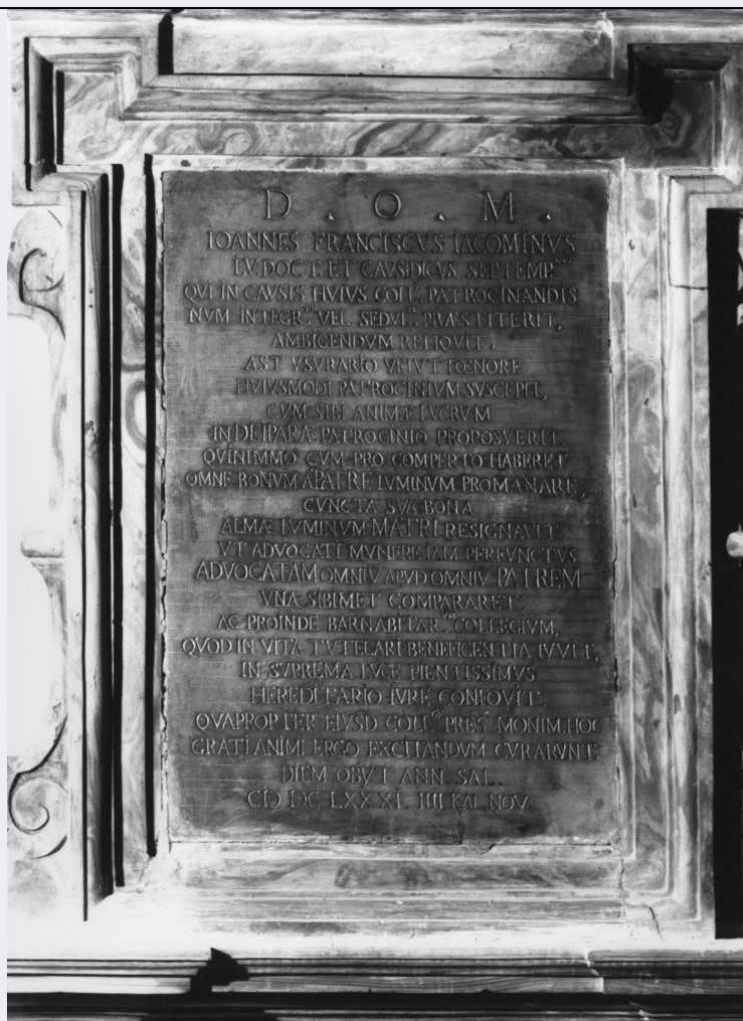 D . O . M .
IOANNES FRANCISCVS IACOMINVS
I.V. DOCT. ET CAVSIDICVS SEPTEMP.
QVI IN CAVSIS HVIVS COLL. PATROCINANDIS
NVM INTEGR. VEL SEDVL. PRÆSTITERIT,
AMBIGENDVM RELIQVIT.
AST VSVRARIO VELVT FŒNORE
HVIVSMODI PATROCINIVM SVSCEPIT,
CVM SIBI ANIMÆ LVCRVM
IN DEIPARÆ PATROCINIO PROPOSVERIT.
QVINIMMO CVM PRO COMPERTO HABERET
OMNE BONVM A PATRE LVMINVM PROMANARE,
CVNCTA SVA BONA
ALMÆ LVMINVM MATRI RESIGNAVIT
VT ADVOCATI MVNERE IAM PERFVNCTVS
ADVOCATAM OMNIV APVD OMNIV PATREM
VNA SIBIMET COMPARARET
AC PROINDE BARNABITAR. COLLEGIVM,
QVOD IN VITA TVTELARI BENEFICENTIA IVVIT,
IN SVPREMA LVCE PIENTISSIMVS
HEREDITARIO IVRE CONFOVIT.
QVAPROPTER EIVSD COLL. PRES MONIM. HOC
GRATI ANIMI ERGO EXCITANDVM CVRARVNT.
DIEM OBIJT ANN. SAL.
CIƆ DC LXXXI IIII KAL. NOV.